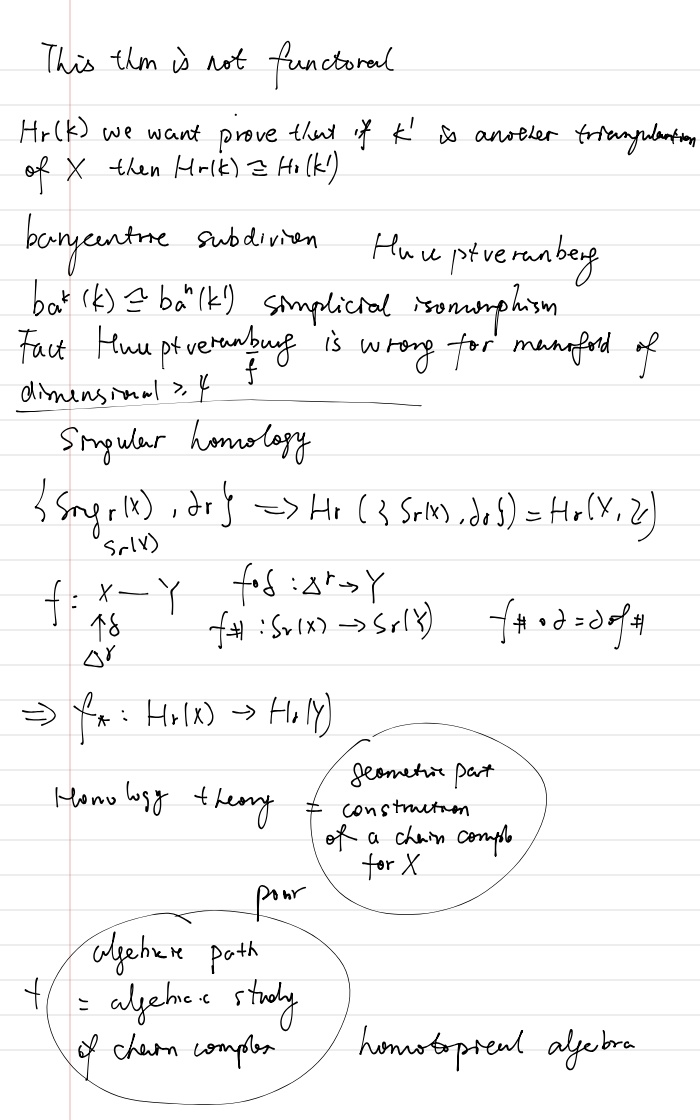 This thm is not functoral
Hr(k) we want prove that if k' is another triangulation
of X then Hr(k) ≅ Hr(k')
barycentric subdivision Hauptveranberg
baᵏ(k) ≅ baⁿ(k') simplicial isomorphism
Fact Hauptveranbug is wrong for manifold of
f
dimensional ≥ 4
Singular homology
{Singr(X), ∂r} => Hr ({Sr(X), ∂r}) = Hr(X, Z)
Sr(X)
f: X — Y f∘δ : Δʳ → Y
↑δ f# : Sr(X) → Sr(Y) f# ∘ ∂ = ∂ ∘ f#
Δʳ
=> f* : Hr(X) → Hr(Y)
Homology theory = geometric part
construction
of a chain comple
for X
algebraic path
+ = algebraic study
of chain complex homotopical algebra